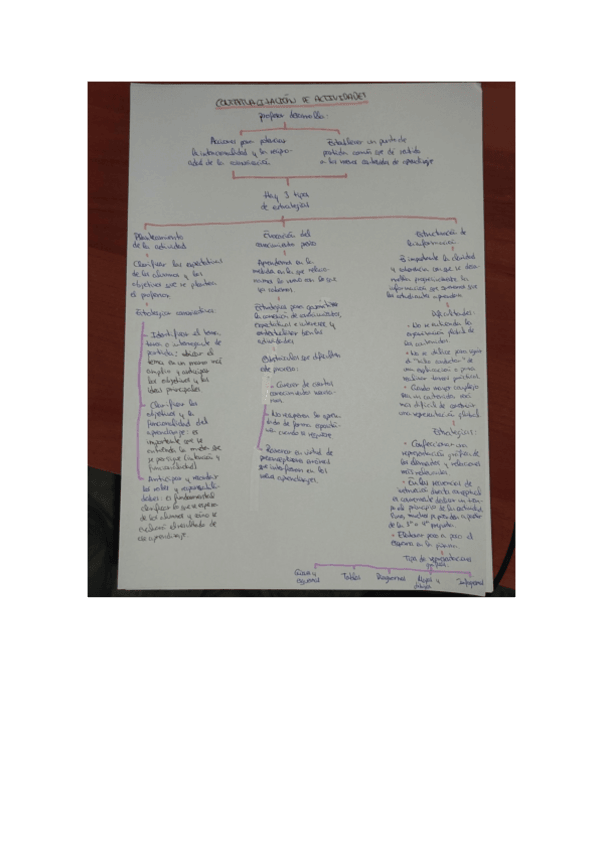 CONTEXTUALIZACIÓN DE ACTIVIDADES
Profesor desarrolla:
Acciones para potenciar
la intencionalidad y la recipro-
cidad de la comunicación.
Establecer un punto de
partida común que dé sentido
a los nuevos contenidos de aprendizaje
Hay 3 tipos
de estrategias
Planteamiento
de la actividad
Clarificar las expectativas
de los alumnos y los
objetivos que se plantea
el profesor.
Estrategias
- Identificar el tema,
tarea o interrogante de
partida: situar el
tema en un marco más
amplio y anticipar
los objetivos y las
ideas principales.
- Clarificar los
objetivos y la
funcionalidad del
aprendizaje: es
importante que se
entienda la meta que
se persigue (intención y
funcionalidad)
- Anticipar y recordar
los roles y responsabili-
dades: es fundamental
clarificar lo que se espera
de los alumnos y cómo se
evaluará el resultado de
ese aprendizaje.
Evocación del
conocimiento previo
Aprendemos en la
medida en la que relacio-
namos lo nuevo con lo que
ya sabemos
Estrategias para garantizar
la conexión de conocimientos,
expectativas e intereses y
contextualizar bien las
actividades
Obstáculos que dificultan
este proceso:
- Carecer de ciertos
conocimientos necesa-
rios.
- No recuperan lo apren-
dido de forma espontá-
nea cuando se requiere
- Razonar en virtud de
preconcepciones erróneas
que interfieren en los
nuevos aprendizajes.
Estructuración de
la información
Es importante la claridad
y coherencia con que se
información que queremos que
los estudiantes aprendan
Dificultades:
- No se entienda la
organización global de
los contenidos
- No se utilice para seguir
el "hilo conductor" de
una explicación o para
realizar tareas prácticas.
- Cuanto mayor complejo
sea un contenido será
más difícil de construir
una representación global.
Estrategias:
- Confeccionar una
representación gráfica de
los elementos y relaciones
más relevantes
- En las secuencias de
instrucción directa
es conveniente dedicar un tiem-
po al principio de la actividad,
pues muchos se pierden a partir
de la 3ª o 4ª pregunta.
- Elaborar paso a paso el
esquema en la pizarra
Tipos de representaciones
gráficas:
Tablas
Diagramas
Mapas y
dibujos
Infografías